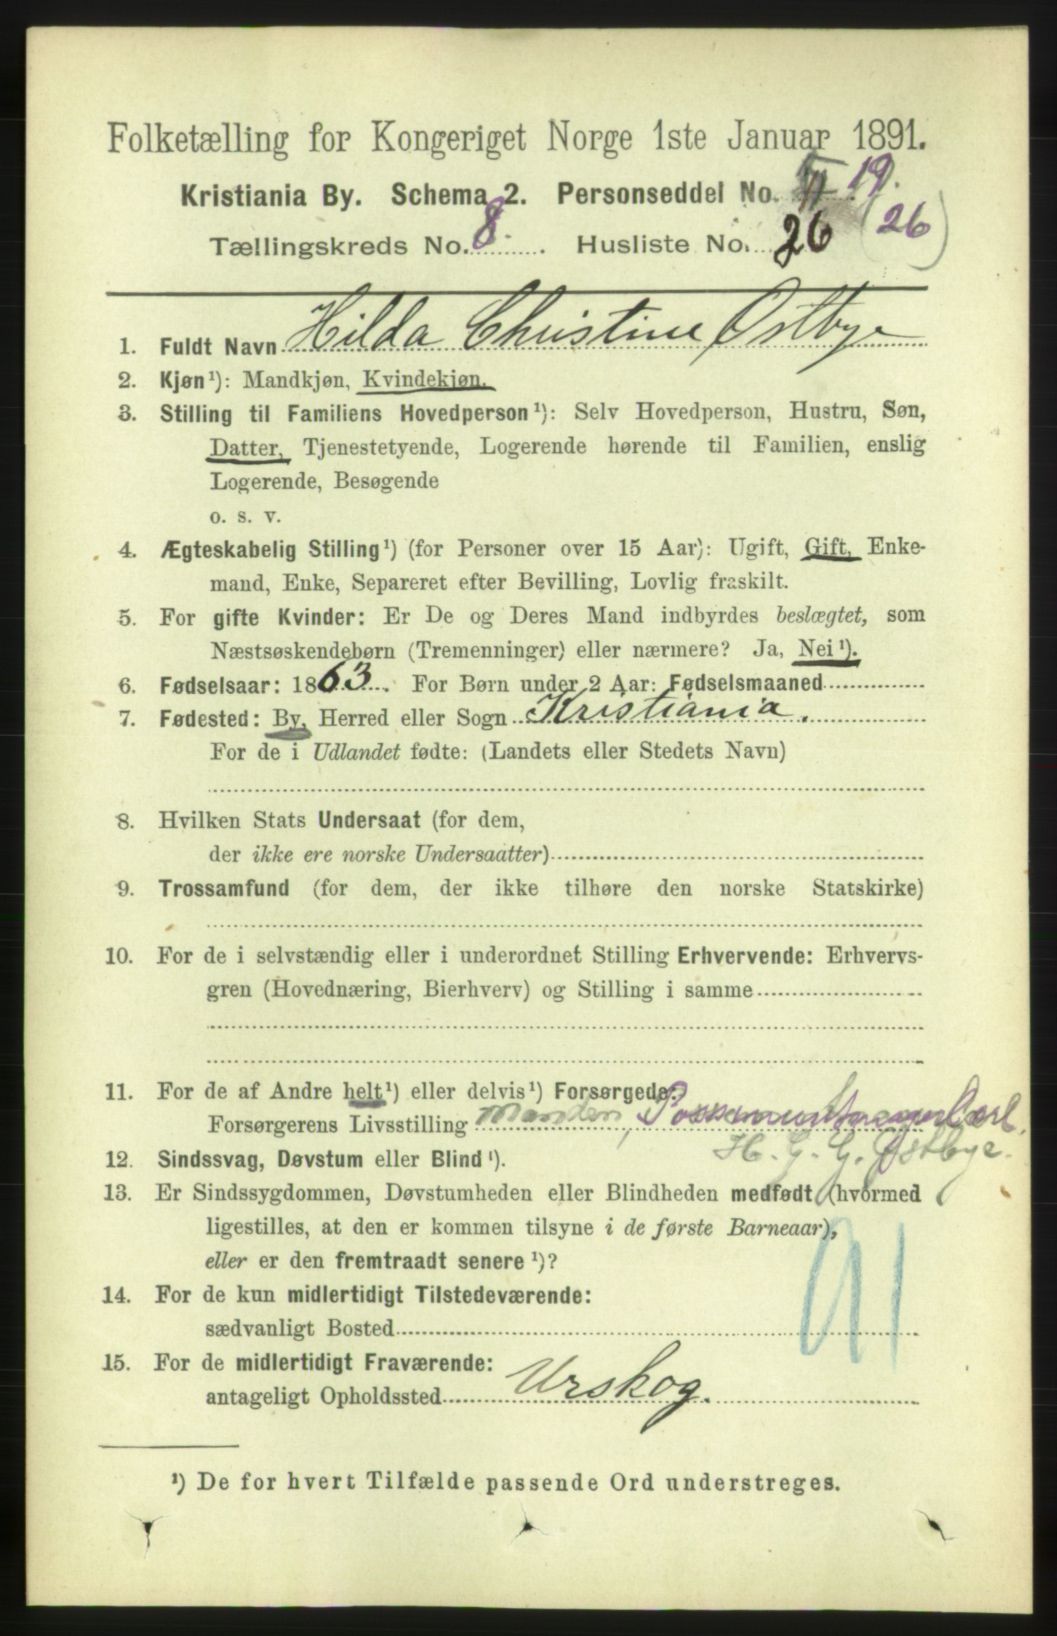 Folketælling for Kongeriget Norge 1ste Januar 1891.
Kristiania By. Schema 2. Personseddel No. 19.
Tællingskreds No. 8. Husliste No. 26 (26)
1. Fuldt Navn Hilda Christine Østbye
2. Kjøn ¹): Mandkjøn, Kvindekjøn.
3. Stilling til Familiens Hovedperson ¹): Selv Hovedperson, Hustru, Søn,
Datter, Tjenestetyende, Logerende hørende til Familien, enslig
Logerende, Besøgende
o. s. v.
4. Ægteskabelig Stilling ¹) (for Personer over 15 Aar): Ugift, Gift, Enke-
mand, Enke, Separeret efter Bevilling, Lovlig fraskilt.
5. For gifte Kvinder: Er De og Deres Mand indbyrdes beslægtet, som
Næstsøskendebørn (Tremenninger) eller nærmere? Ja, Nei ¹).
6. Fødselsaar: 1863. For Børn under 2 Aar: Fødselsmaaned
7. Fødested: By, Herred eller Sogn Kristiania.
For de i Udlandet fødte: (Landets eller Stedets Navn)
8. Hvilken Stats Undersaat (for dem,
der ikke ere norske Undersaatter)
9. Trossamfund (for dem, der ikke tilhøre den norske Statskirke)
10. For de i selvstændig eller i underordnet Stilling Erhvervende: Erhvervs-
gren (Hovednæring, Bierhverv) og Stilling i samme
11. For de af Andre helt ¹) eller delvis ¹) Forsørgede:
Forsørgerens Livsstilling Manden, Carl.
H. G. G. Østbye.
12. Sindssvag, Døvstum eller Blind ¹).
13. Er Sindssygdommen, Døvstumheden eller Blindheden medfødt (hvormed
ligestilles, at den er kommen tilsyne i de første Barneaar),
eller er den fremtraadt senere ¹)?
14. For de kun midlertidigt Tilstedeværende:
sædvanligt Bosted
91
15. For de midlertidigt Fraværende:
antageligt Opholdssted Urskog.
¹) De for hvert Tilfælde passende Ord understreges.